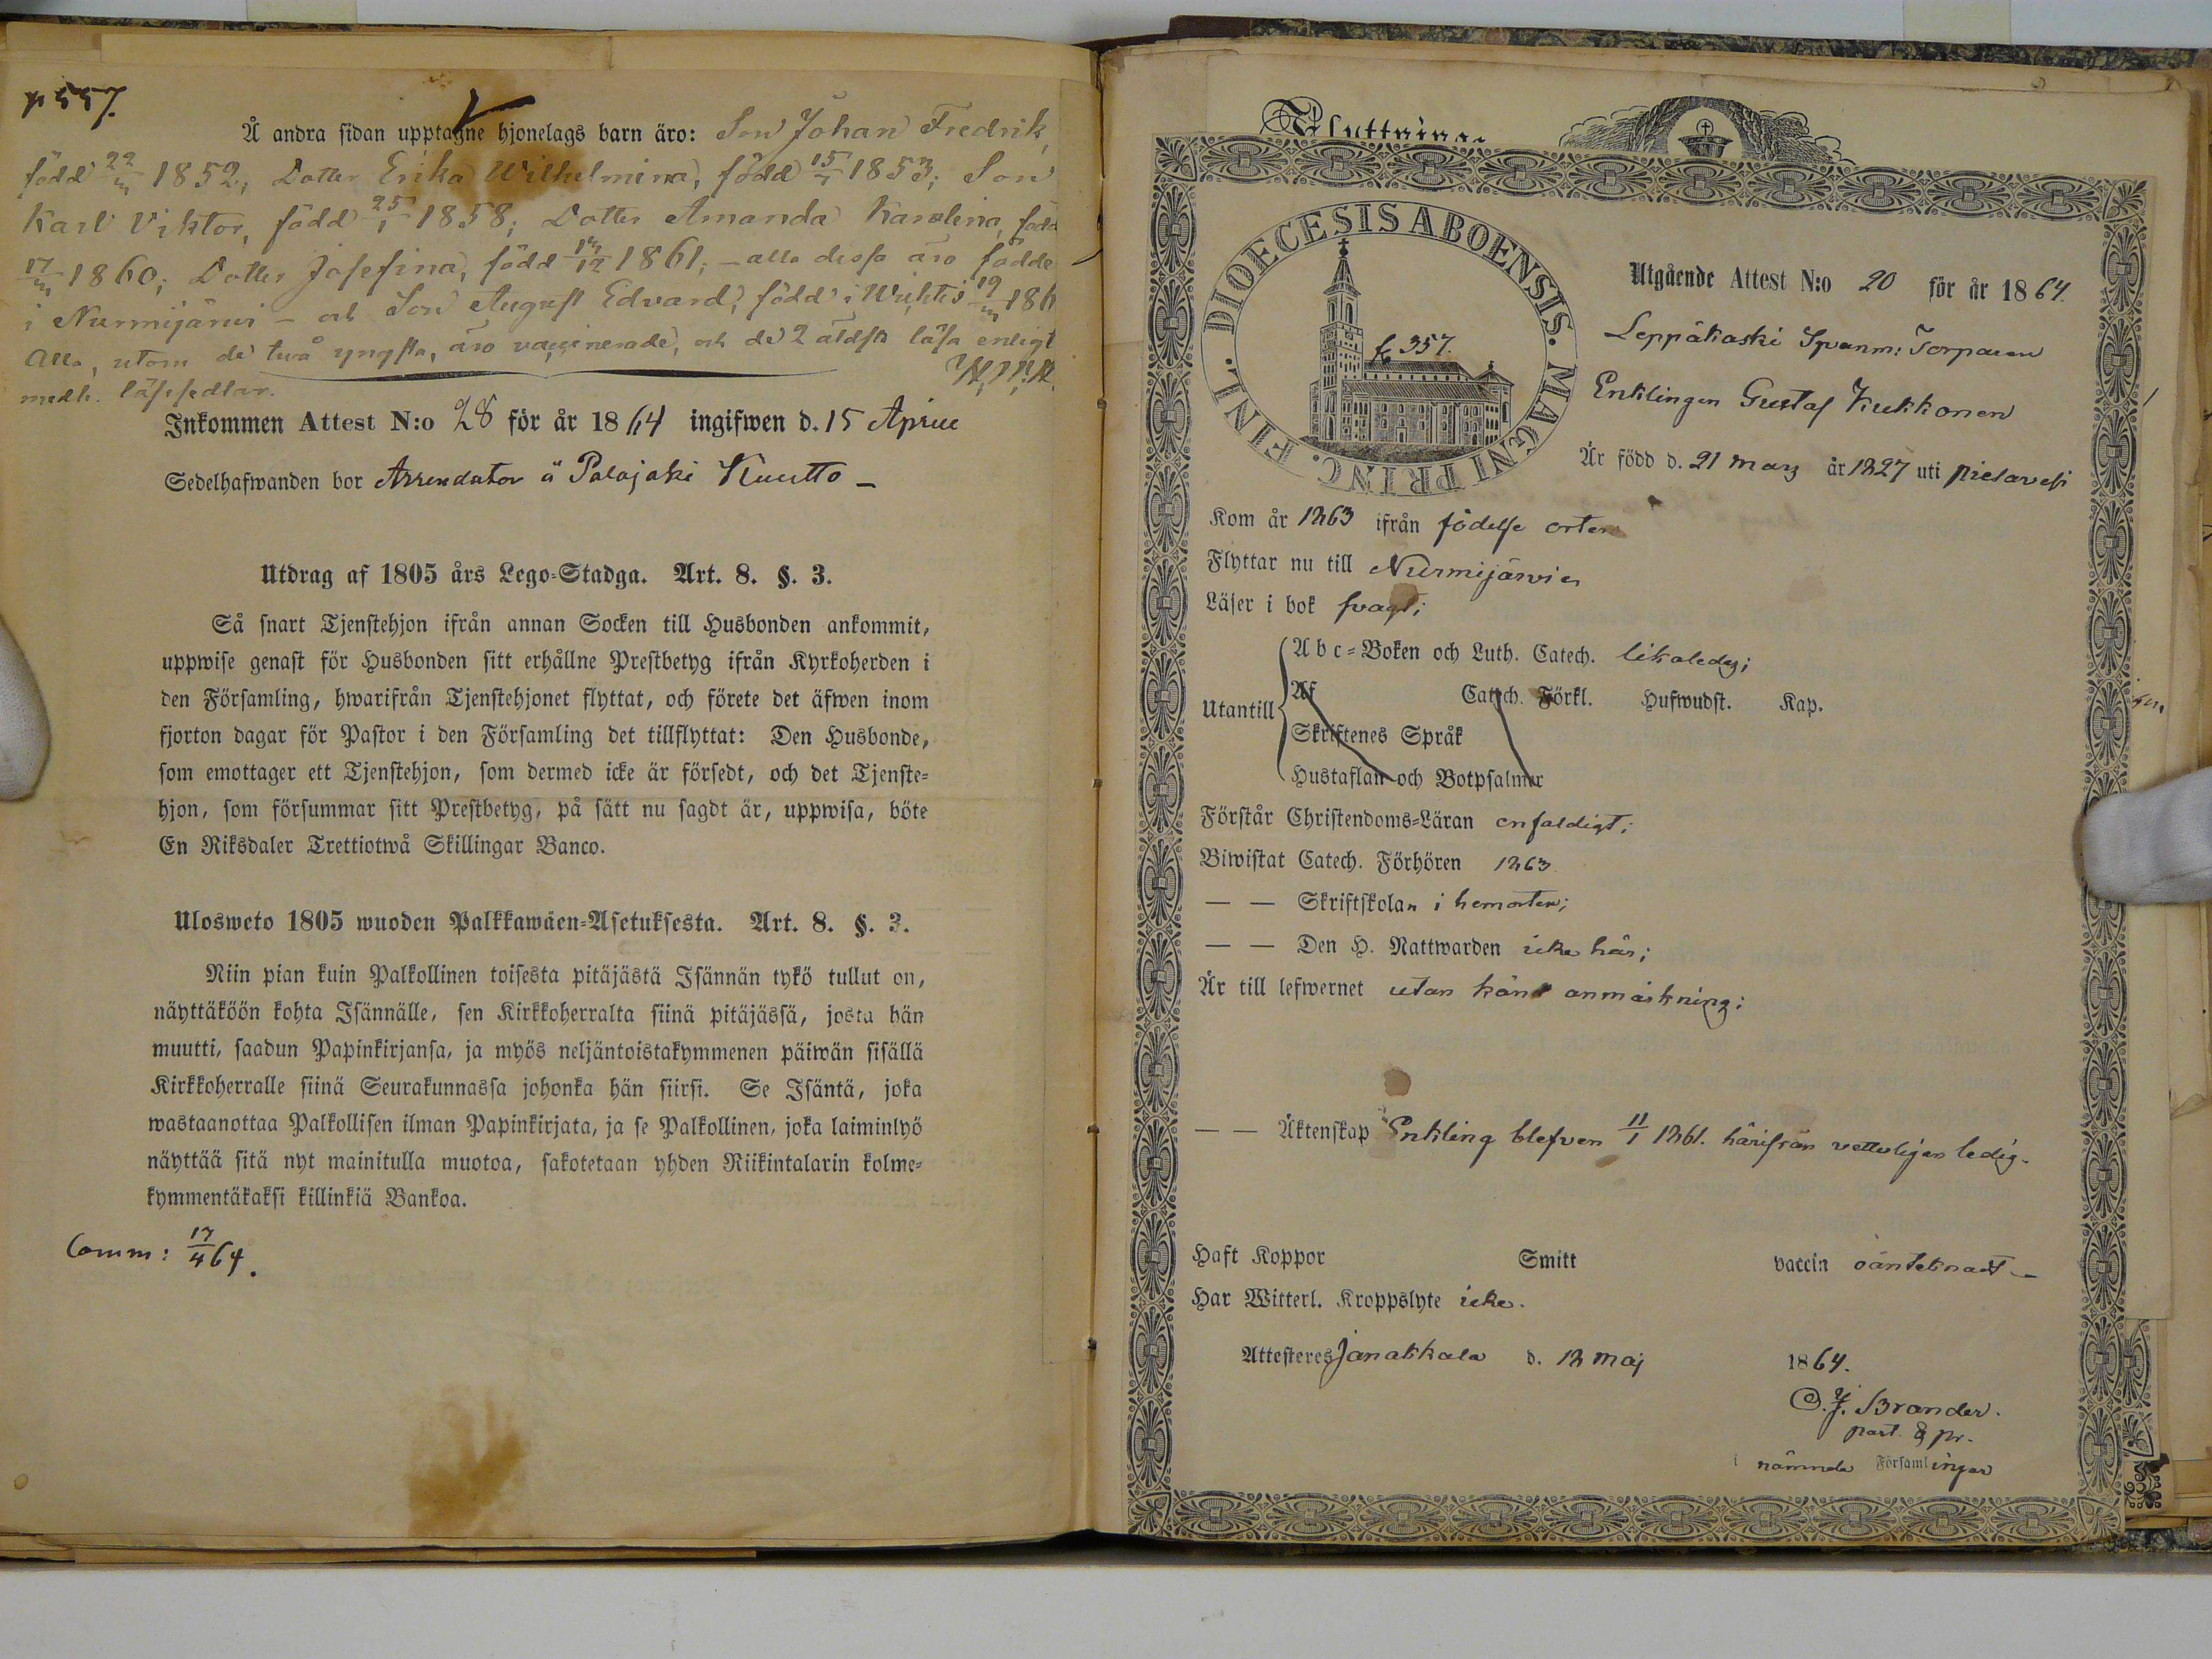 p 557.
Å andra sidan upptagne hjonelags barn äro: Son Johan Fredrik,
född 22 1852; Dotter Erika Wilhelmina, född 15 1853; Son
Karl Viktor, född 25 1858; Dotter Amanda Karolina, född
17 1860; Dotter Josefina, född 12 1861; – alla dessa äro födde
i Nurmijärvi – och Son August Edvard, född i Wichtis 19 186
Alla, utom de två yngsta, äro vaccinerade, och de 2 äldsta läsa enligt
medh. läsesedlar.
Inkommen Attest N:o 28 för år 1864 ingifwen d. 15 April
Sedelhafwanden bor Arrendator å Palojoki Kuutto –
Utdrag af 1805 års Lego-Stadga. Art. 8. §. 3.
Så snart Tjenstehjon ifrån annan Socken till Husbonden ankommit,
uppwise genast för Husbonden sitt erhållne Prestbetyg ifrån Kyrkoherden i
den Församling, hwarifrån Tjenstehjonet flyttat, och förete det äfwen inom
fjorton dagar för Pastor i den Församling det tillflyttat: Den Husbonde,
som emottager ett Tjenstehjon, som dermed icke är försedt, och det Tjenste-
hjon, som försummar sitt Prestbetyg, på sätt nu sagdt är, uppwisa, böte
En Riksdaler Trettiotwå Skillingar Banco.
Ulosweto 1805 wuoden Palkkawäen-Asetuksesta. Art. 8. §. 3.
Niin pian kuin Palkollinen toisesta pitäjästä Isännän tykö tullut on,
näyttäköön kohta Isännälle, sen Kirkkoherralta siinä pitäjässä, josta hän
muutti, saadun Papinkirjansa, ja myös neljäntoistakymmenen päiwän sisällä
Kirkkoherralle siinä Seurakunnassa johonka hän siirsi. Se Isäntä, joka
wastaanottaa Palkollisen ilman Papinkirjata, ja se Palkollinen, joka laiminlyö
näyttää sitä nyt mainitulla muotoa, sakotetaan yhden Riikintalarin kolme-
kymmentäkaksi killinkiä Bankoa.
Comm: 17/4 64.
DIOECESIS ABOENSIS. MAGNI PRINC. FINL.
f. 357.
Utgående Attest N:o 20 för år 1864.
Leppäkoski Spanm: Torparen
Enklingen Gustaf Kukkonen
Är född d. 21 Mars år 1827 uti Pielavesi
Kom år 1863 ifrån födelse orten
Flyttar nu till Nurmijärvi
Läser i bok svagt;
Utantill
Abc-Boken och Luth. Catech. likaledes;
Af Catech. Förkl. Hufwudst. Kap.
Skriftenes Språk
Hustaflan och Botpsalmer
Förstår Christendoms-Läran enfaldigt;
Biwistat Catech. Förhören 1863
— — Skriftskolan i hemorten;
— — Den H. Nattwarden icke här;
Är till lefwernet utan känd anmärkning;
— — Äktenskap Enkling blefven 11/1 1861. härifrån vetterligen ledig.
Haft Koppor Smitt vaccin oantecknadt –
Har Witterl. Kroppslyte icke.
Attesteres Janakkala d. 12 Maj 1864.
O. J. Brander.
past. & pr.
i nämnda Församlingar